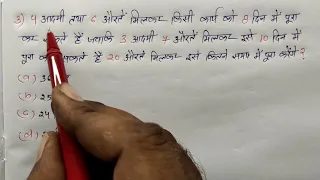 3) 4 आदमी तथा 6 औरतें मिलकर किसी कार्य को 8 दिन में पूरा
कर सकते हैं जबकि 3 आदमी 7 औरतें मिलकर इसे 10 दिन में
पूरा कर सकते हैं 20 औरतें मिलकर इसे कितने समय में पूरा करेंगे ?
(a) 36
(b) 25
(c) 24
(d)